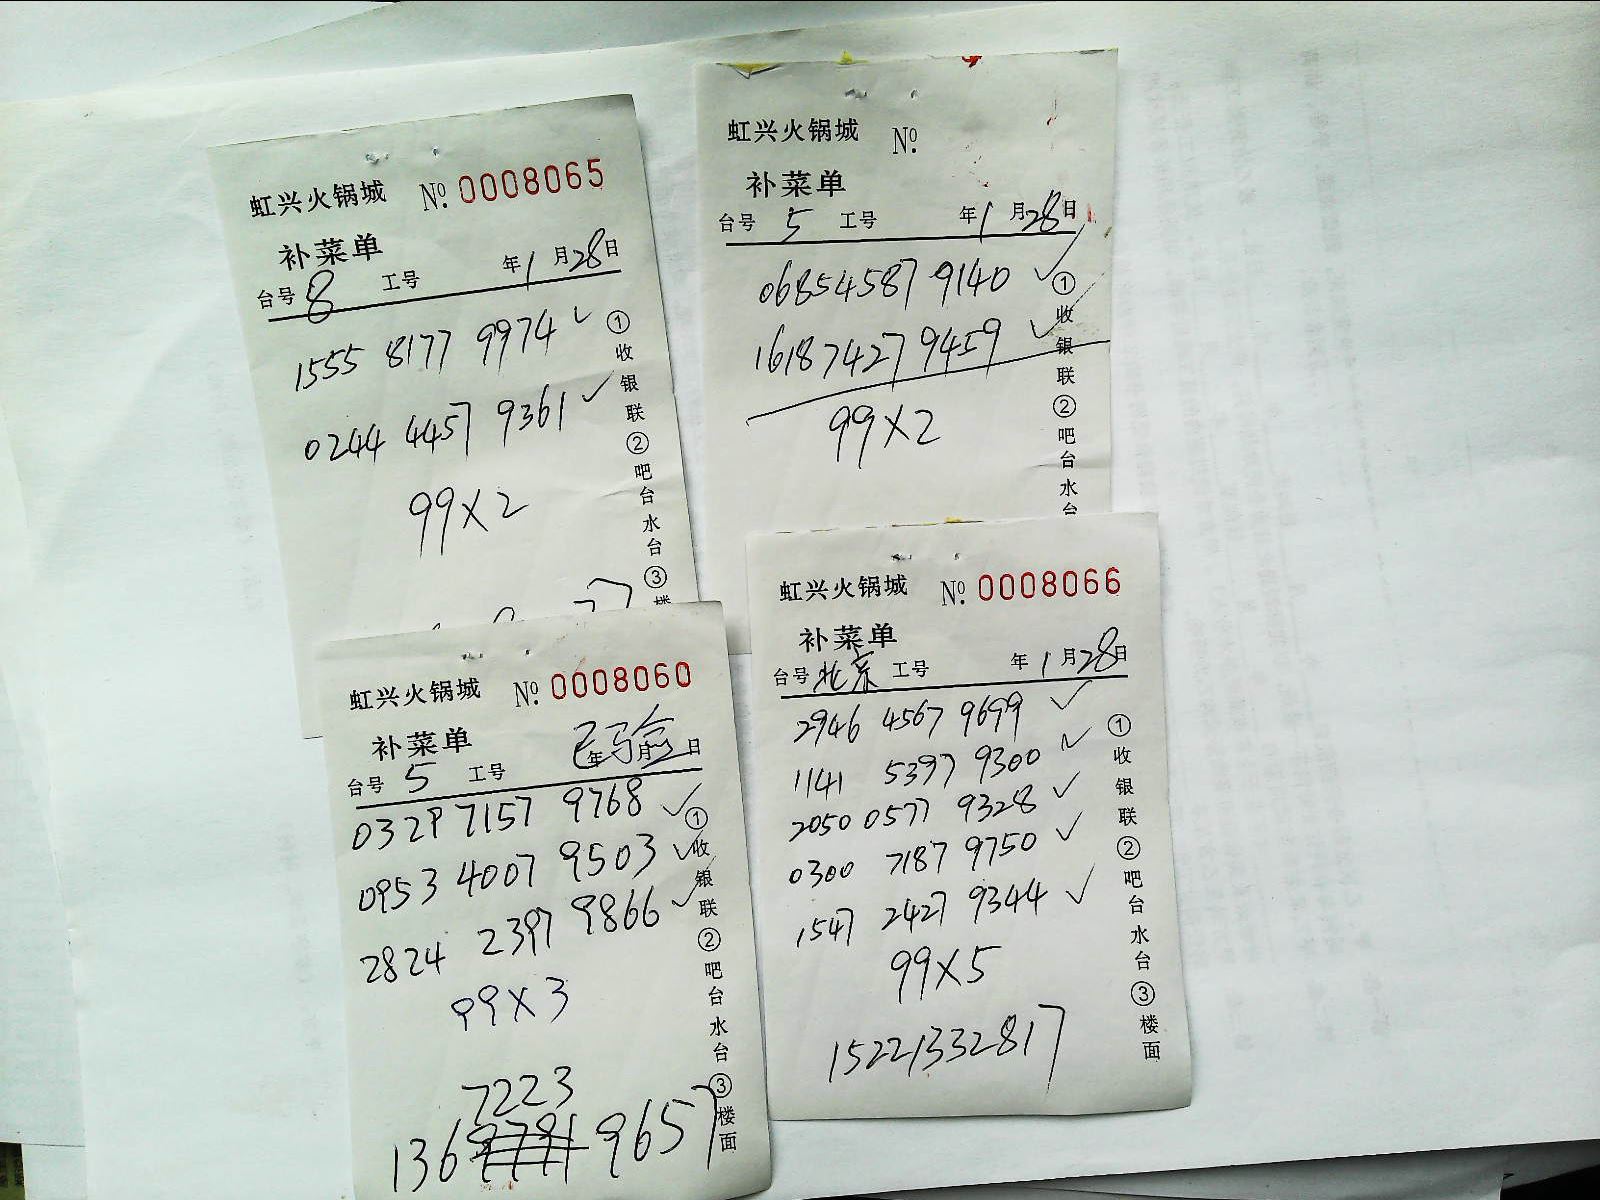 虹兴火锅城 №. 0008065
补菜单
台号 8 工号 年 1 月 28 日
1555 8177 9974 ✓
0244 4457 9361 ✓
99×2
①收银联②吧台水台③
虹兴火锅城 №.
补菜单
台号 5 工号 年 1 月 28 日
06854587 9140 ✓
16187427 9459 ✓
99×2
①收银联②吧台水
虹兴火锅城 №. 0008060
补菜单 已验
台号 5 工号 年 月 日
0329 7157 9768 ✓
0953 4007 9503 ✓
2824 2397 9866 ✓
99×3
7223
136 9657
①收银联②吧台水台③楼面
虹兴火锅城 №. 0008066
补菜单
台号 北京 工号 年 1 月 28 日
2946 4567 9699 ✓
1141 5397 9300 ✓
2050 0577 9328 ✓
0300 7187 9750 ✓
1547 2427 9344 ✓
99×5
15221332817
①收银联②吧台水台③楼面